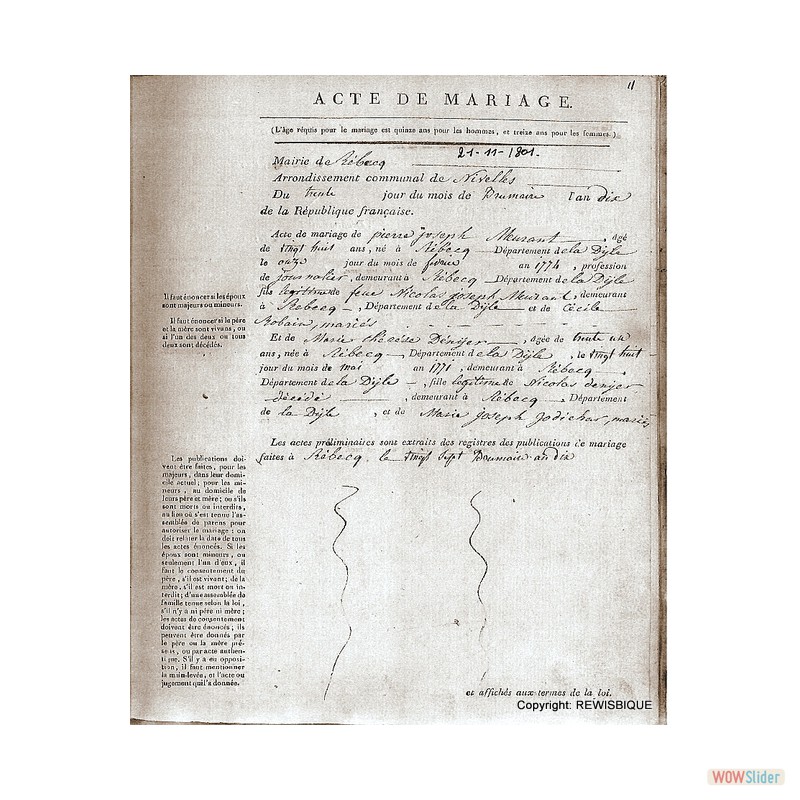 11
ACTE DE MARIAGE.
(L'âge réquis pour le mariage est quinze ans pour les hommes, et treize ans pour les femmes.)
21-11-1801.
Mairie de Rébecq
Arrondissement communal de Nivelles
Du trente jour du mois de Brumaire l'an dix
de la République française.
Acte de mariage de pierre joseph Meurant, agé
de vingt huit ans, né à Rébecq Département de la Dijle
le onze jour du mois de fevrier an 1774, profession
de journalier, demeurant à Rébecq Département de la Dijle
fils legitime de feue Nicolas Joseph Meurant, demeurant
à Rebecq, Département de la Dijle et de Cécile
Robain, mariés
Et de Marie thérèse Dénijer, agée de trente un
ans, née à Rébecq, Département de la Dijle, le vingt huit
jour du mois de mai an 1771, demeurant à Rébecq,
Département de la Dijle, fille legitime de Nicolas denijer
décédé, demeurant à Rébecq, Département
de la Dijle, et de Marie Joseph Jodichar, mariés
Les actes préliminaires sont extraits des registres des publications de mariage
faites à Rébecq, le vingt sept Brumaire an dix
Il faut énoncer si les époux
sont majeurs ou mineurs.
Il faut énoncer si le père
et la mère sont vivans, ou
si l'un des deux ou tous
deux sont décédés.
Les publications doi-
vent être faites, pour les
majeurs, dans leur domi-
cile actuel; pour les mi-
neurs, au domicile de
leurs père et mère; ou s'ils
sont morts ou interdits,
au lieu où s'est tenue l'as-
semblée de parens pour
autoriser le mariage: on
doit relater la date de tous
les actes énoncés. Si les
époux sont mineurs, ou
seulement l'un d'eux, il
faut le consentement du
père, s'il est vivant; de la
mère, s'il est mort ou in-
terdit; d'une assemblée de
famille tenue selon la loi,
s'il n'y a ni père ni mère;
les actes de consentement
doivent être énoncés; ils
peuvent être donnés par
le père ou la mère pré-
sens, ou par acte authen-
tique. S'il y a eu opposi-
tion, il faut mentionner
la main-levée, et l'acte ou
jugement qui l'a donnée.
et affichés aux termes de la loi.
Copyright: REWISBIQUE
WOWSlider